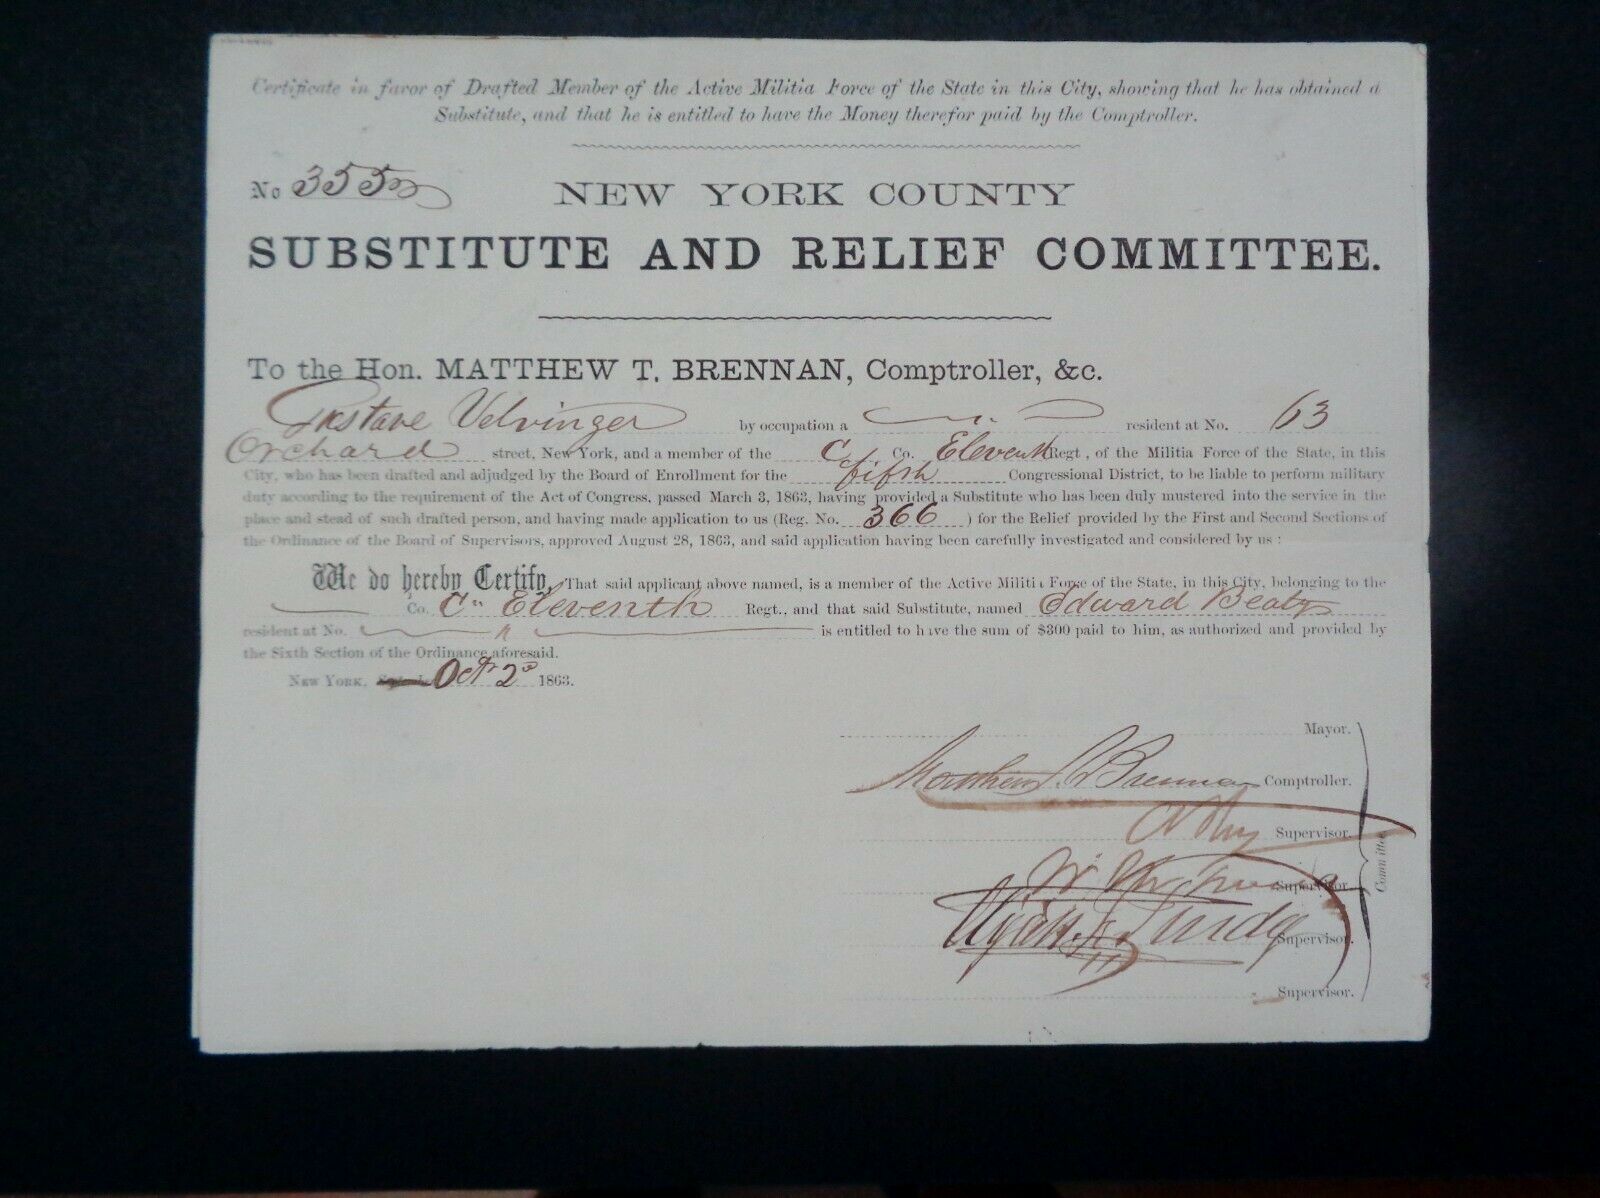 Certificate in favor of Drafted Member of the Active Militia Force of the State in this City, showing that he has obtained a
Substitute, and that he is entitled to have the Money therefor paid by the Comptroller.
No 355
NEW YORK COUNTY
SUBSTITUTE AND RELIEF COMMITTEE.
To the Hon. MATTHEW T. BRENNAN, Comptroller, &c.
Gustave Velvinger by occupation a resident at No. 63
Orchard street, New York, and a member of the C Co. Eleventh Regt., of the Militia Force of the State, in this
City, who has been drafted and adjudged by the Board of Enrollment for the fifth Congressional District, to be liable to perform military
duty according to the requirement of the Act of Congress, passed March 3, 1863, having provided a Substitute who has been duly mustered into the service in the
place and stead of such drafted person, and having made application to us (Reg. No. 366 ) for the Relief provided by the First and Second Sections of
the Ordinance of the Board of Supervisors, approved August 28, 1863, and said application having been carefully investigated and considered by us :
We do hereby Certify, That said applicant above named, is a member of the Active Militia Force of the State, in this City, belonging to the
Co. C" Eleventh Regt., and that said Substitute, named Edward Beaty
resident at No. " is entitled to have the sum of $300 paid to him, as authorized and provided by
the Sixth Section of the Ordinance aforesaid.
NEW YORK, Oct 2d 1863.
Mayor.
Matthew T Brennan Comptroller.
Supervisor.
Supervisor.
Supervisor.
Supervisor.
Committee